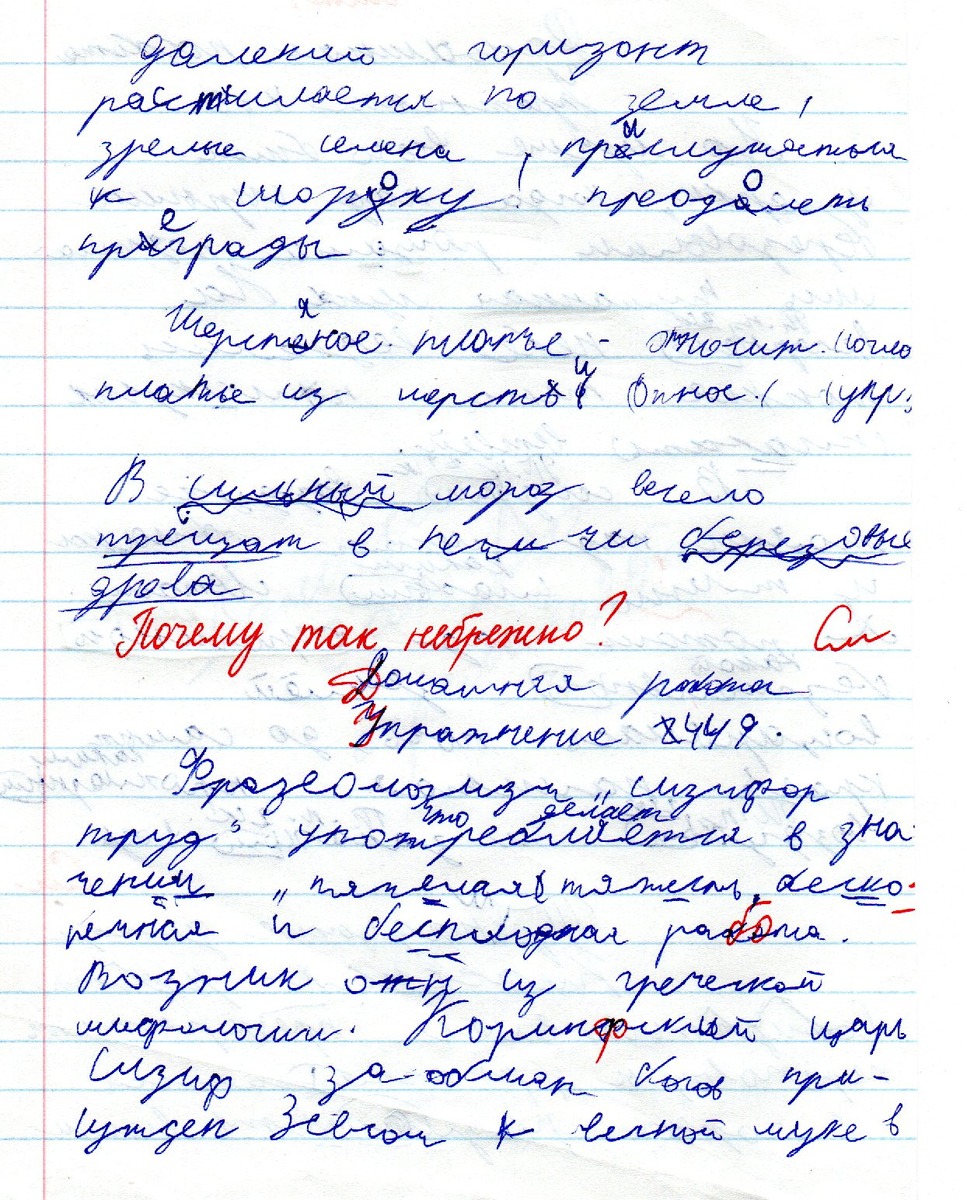 далекий горизонт
растилается по земле,
зрелые семена, прислушаться
к шороху, преодолеть
преграды
Шерстяное платье -
платье из шерсти (относ.) (упр.
В сильный мороз весело
трещат в печи березовые
дрова
Почему так небрежно? См
Домашняя работа
Упражнение 449.
Фразеологизм „сизифов
что делает
труд“ употребляется в зна-
чении „тяжелая, беско-
нечная и бесплодная работа.
Возник он из греческой
мифологии. Коринфский царь
Сизиф за обман богов при-
нужден Зевсом к вечной муке в